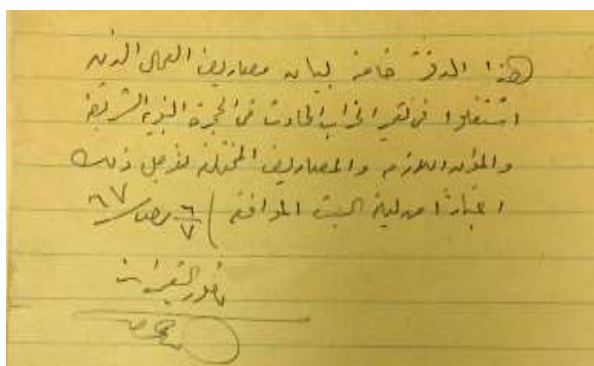 هذا الدفتر خاصة لبيان مصاريف العمال الذين
اشتغلوا في تعمير الخراب الحادث في الحجرة النبوية الشريفة
والمؤن اللازمة والمصاريف المختلفة لأجل ذلك
اعتبارًا من ليلة السبت الموافق ٦/٧ رمضان ٨٧
مأمور التعميرات